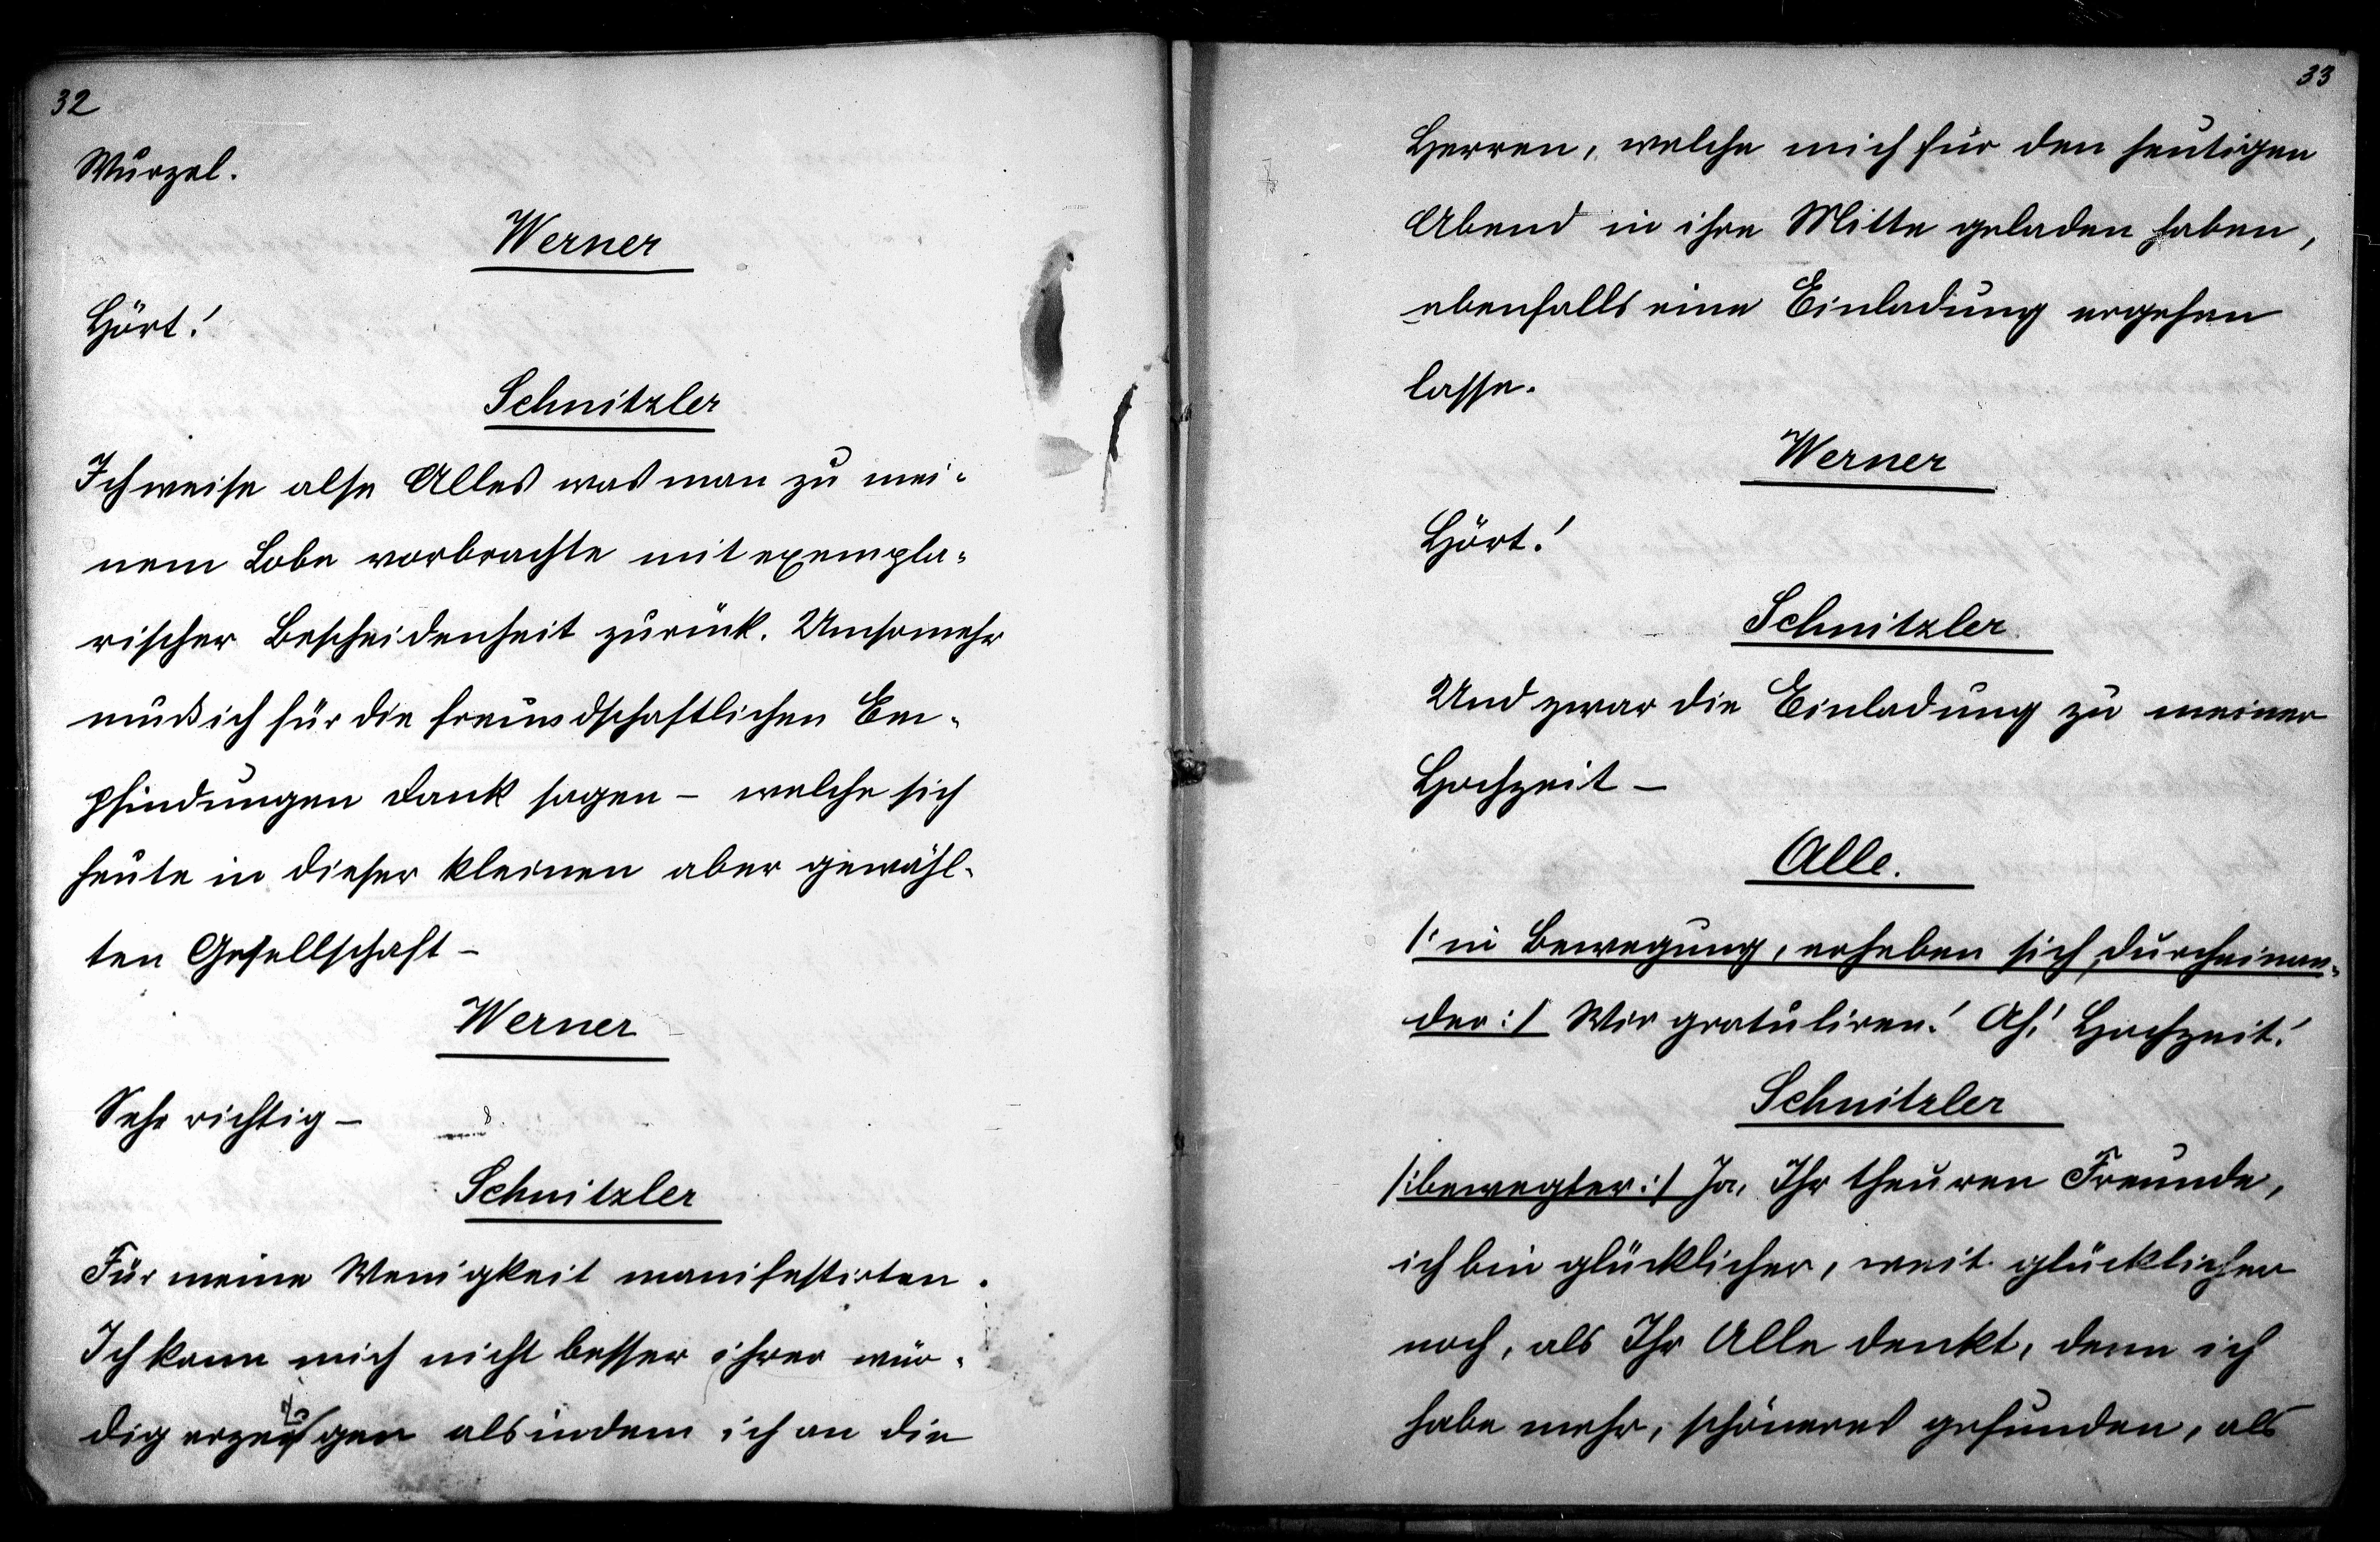 32
Wurzel.
Werner
Hört!
Schnitzler
Ich weise also Alles was man zu mei-
nem Lobe vorbrachte mit exempla-
rischer Bescheidenheit zurück. Umsomehr
muß ich für die freundschaftlichen Em-
pfindungen Dank sagen – welche sich
heute in dieser kleinen aber gewähl-
ten Gesellschaft –
Werner
Sehr richtig –
Schnitzler
Für meine Wenigkeit manifestirten.
Ich kann mich nicht besser ihrer wür-
dig erzeigen als indem ich an die
33
Herren, welche mich für den heutigen
Abend in ihre Mitte geladen haben,
ebenfalls eine Einladung ergehen
lasse.
Werner
Hört!
Schnitzler
Und zwar die Einladung zu meiner
Hochzeit –
Alle.
/: in Bewegung, erheben sich, durcheinan-
der :/ Wir gratuliren! Ah! Hochzeit!
Schnitzler
/: bewegter :/ Ja, Ihr theuren Freunde,
ich bin glücklicher, weit glücklicher
noch, als Ihr Alle denkt, denn ich
habe mehr, schöneres gefunden, als